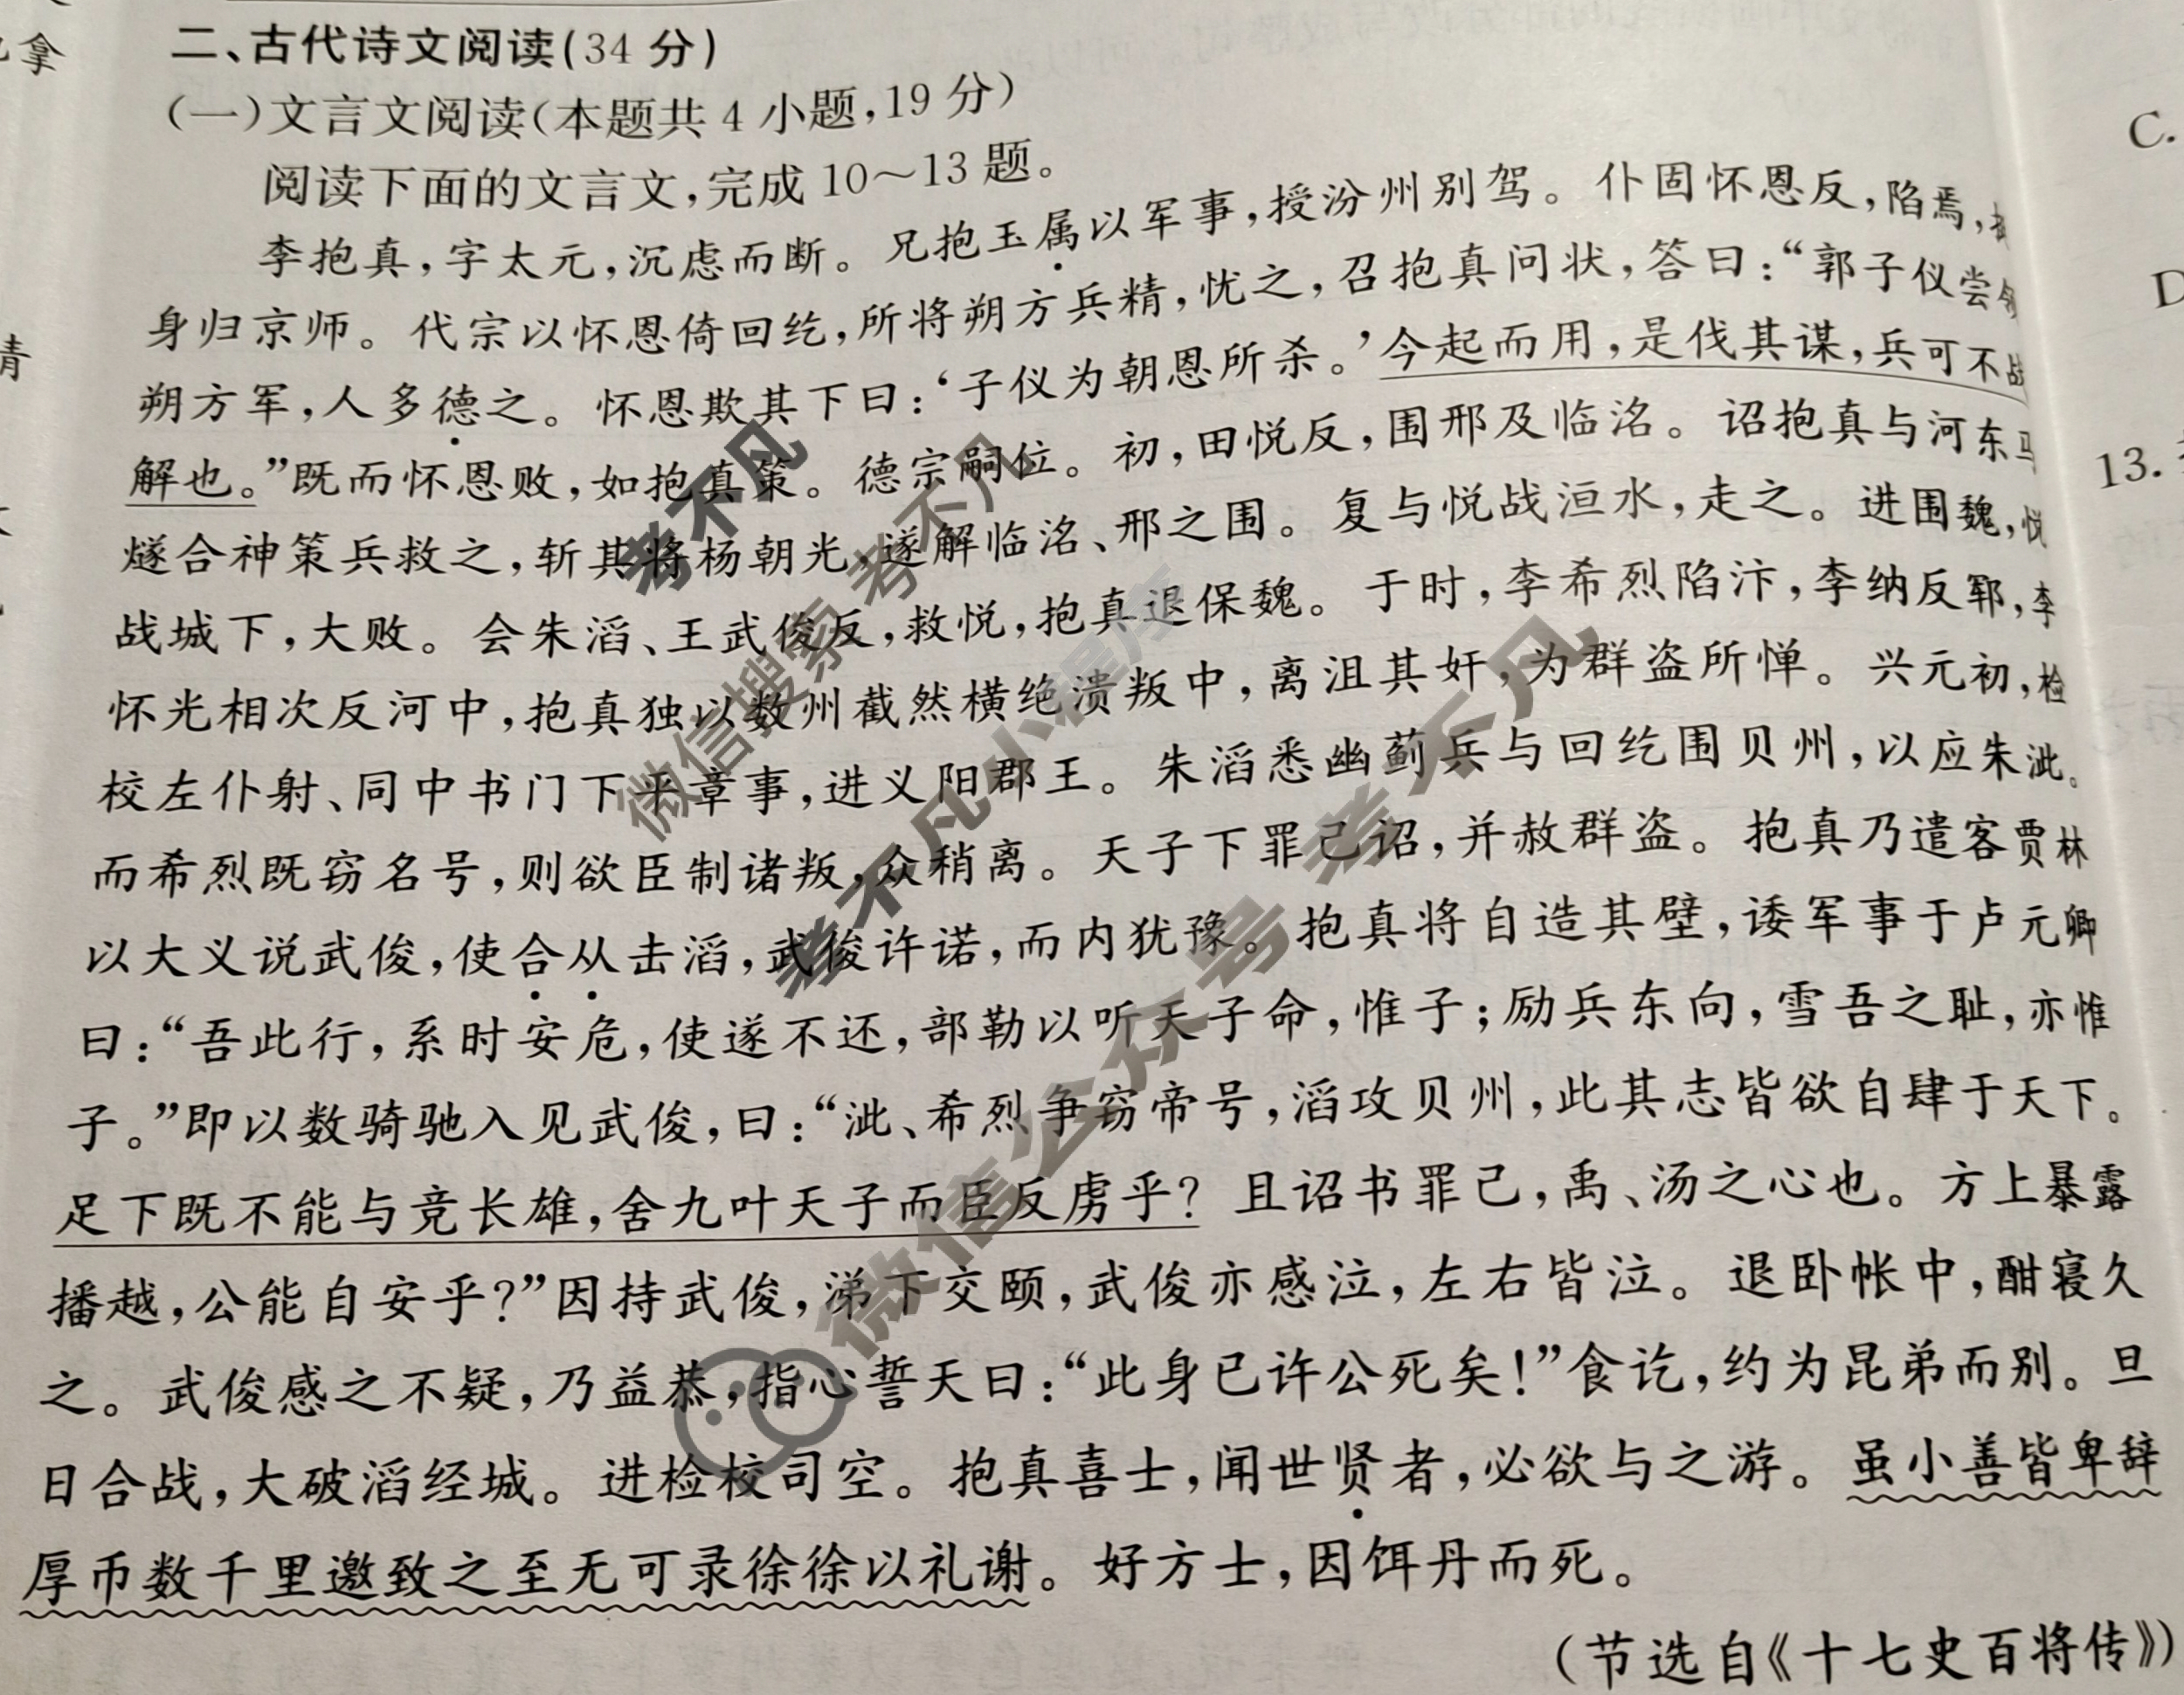 二、古代诗文阅读(34 分)
(一)文言文阅读(本题共 4 小题,19 分)
阅读下面的文言文,完成 10～13 题。
李抱真,字太元,沉虑而断。兄抱玉属以军事,授汾州别驾。仆固怀恩反,陷焉,
身归京师。代宗以怀恩倚回纥,所将朔方兵精,忧之,召抱真问状,答曰:“郭子仪尝
朔方军,人多德之。怀恩欺其下曰:‘子仪为朝恩所杀。’今起而用,是伐其谋,兵可不战
解也。”既而怀恩败,如抱真策。德宗嗣位。初,田悦反,围邢及临洺。诏抱真与河东马
燧合神策兵救之,斩其将杨朝光,遂解临洺、邢之围。复与悦战洹水,走之。进围魏,悦
战城下,大败。会朱滔、王武俊反,救悦,抱真退保魏。于时,李希烈陷汴,李纳反郓,李
怀光相次反河中,抱真独以数州截然横绝溃叛中,离沮其奸,为群盗所惮。兴元初,检
校左仆射、同中书门下平章事,进义阳郡王。朱滔悉幽蓟兵与回纥围贝州,以应朱泚。
而希烈既窃名号,则欲臣制诸叛,众稍离。天子下罪己诏,并赦群盗。抱真乃遣客贾林
以大义说武俊,使合从击滔,武俊许诺,而内犹豫。抱真将自造其壁,诿军事于卢元卿
曰:“吾此行,系时安危,使遂不还,部勒以听天子命,惟子;励兵东向,雪吾之耻,亦惟
子。”即以数骑驰入见武俊,曰:“泚、希烈争窃帝号,滔攻贝州,此其志皆欲自肆于天下。
足下既不能与竞长雄,舍九叶天子而臣反虏乎?且诏书罪己,禹、汤之心也。方上暴露
播越,公能自安乎?”因持武俊,涕下交颐,武俊亦感泣,左右皆泣。退卧帐中,酣寝久
之。武俊感之不疑,乃益恭,指心誓天曰:“此身已许公死矣!”食讫,约为昆弟而别。旦
日合战,大破滔经城。进检校司空。抱真喜士,闻世贤者,必欲与之游。虽小善皆卑辞
厚币数千里邀致之至无可录徐徐以礼谢。好方士,因饵丹而死。
(节选自《十七史百将传》)
拿
C.
D
13.
考不凡
微信搜索 考不凡
考不凡小程序
微信公众号 考不凡